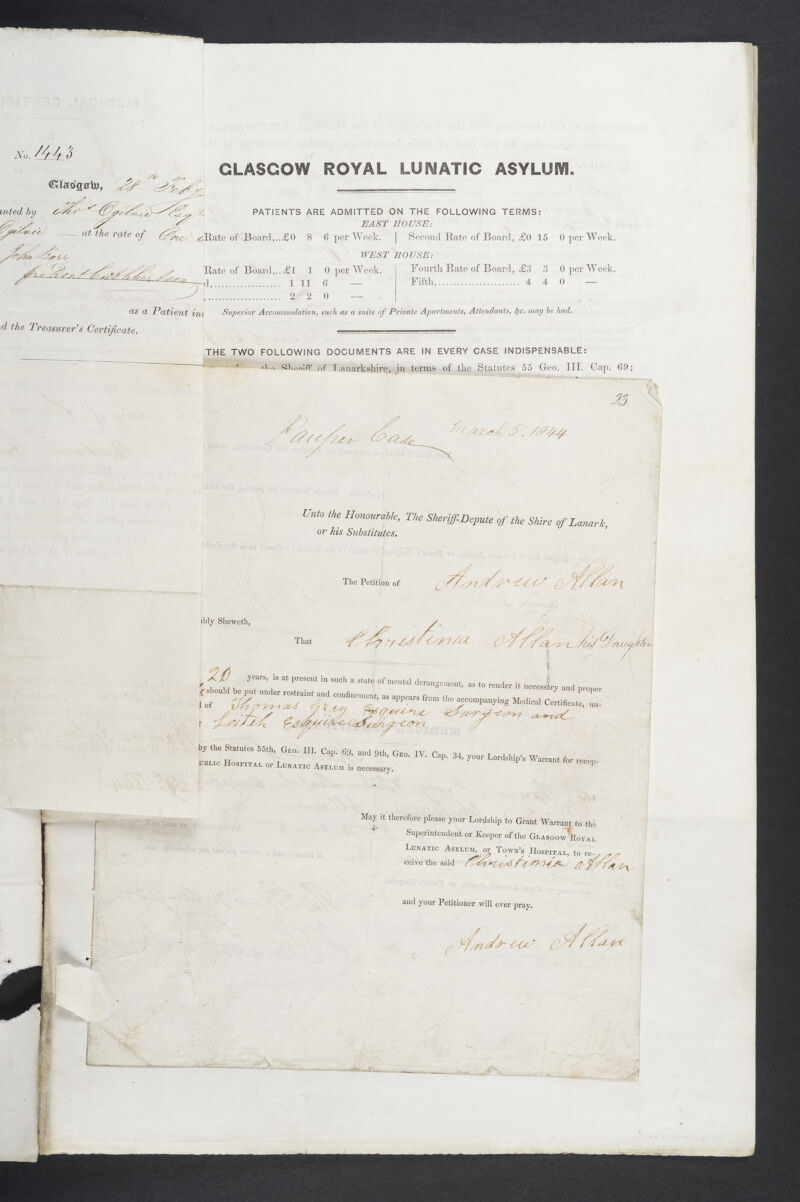 No. 1443
Glasgow, 28th Feby
anted by Thos Ogilvie Esq
Ogilvie — at the rate of One
John
as a Patient in
d the Treasurer's Certificate.
GLASGOW ROYAL LUNATIC ASYLUM.
PATIENTS ARE ADMITTED ON THE FOLLOWING TERMS:
EAST HOUSE:
Rate of Board,...£0 8 6 per Week. | Second Rate of Board, £0 15 0 per Week.
WEST HOUSE:
Rate of Board,...£1 1 0 per Week. | Fourth Rate of Board, £3 3 0 per Week.
d,.................. 1 11 6 — | Fifth,....................... 4 4 0 —
.................. 2 2 0 —
Superior Accommodation, such as a suite of Private Apartments, Attendants, &c. may be had.
THE TWO FOLLOWING DOCUMENTS ARE IN EVERY CASE INDISPENSABLE:
the Sheriff of Lanarkshire, in terms of the Statutes 55 Geo. III. Cap. 69;
23
Pauper Case March 5. 1844
Unto the Honourable, The Sheriff-Depute of the Shire of Lanark,
or his Substitutes.
The Petition of Andrew Allan
ibly Sheweth,
That Christinia Allan his Daughter
20 years, is at present in such a state of mental derangement, as to render it necessary and proper
should be put under restraint and confinement, as appears from the accompanying Medical Certificate, un-
l of Thomas Gray Esquire Surgeon and
Leitch Esquire Surgeon
by the Statutes 55th, Geo. III. Cap. 69, and 9th, Geo. IV. Cap. 34, your Lordship's Warrant for recep-
ublic Hospital or Lunatic Asylum is necessary.
May it therefore please your Lordship to Grant Warrant to the
Superintendent or Keeper of the Glasgow Royal
Lunatic Asylum, or Town's Hospital, to re-
ceive the said Christinia Allan
and your Petitioner will ever pray.
Andrew Allan